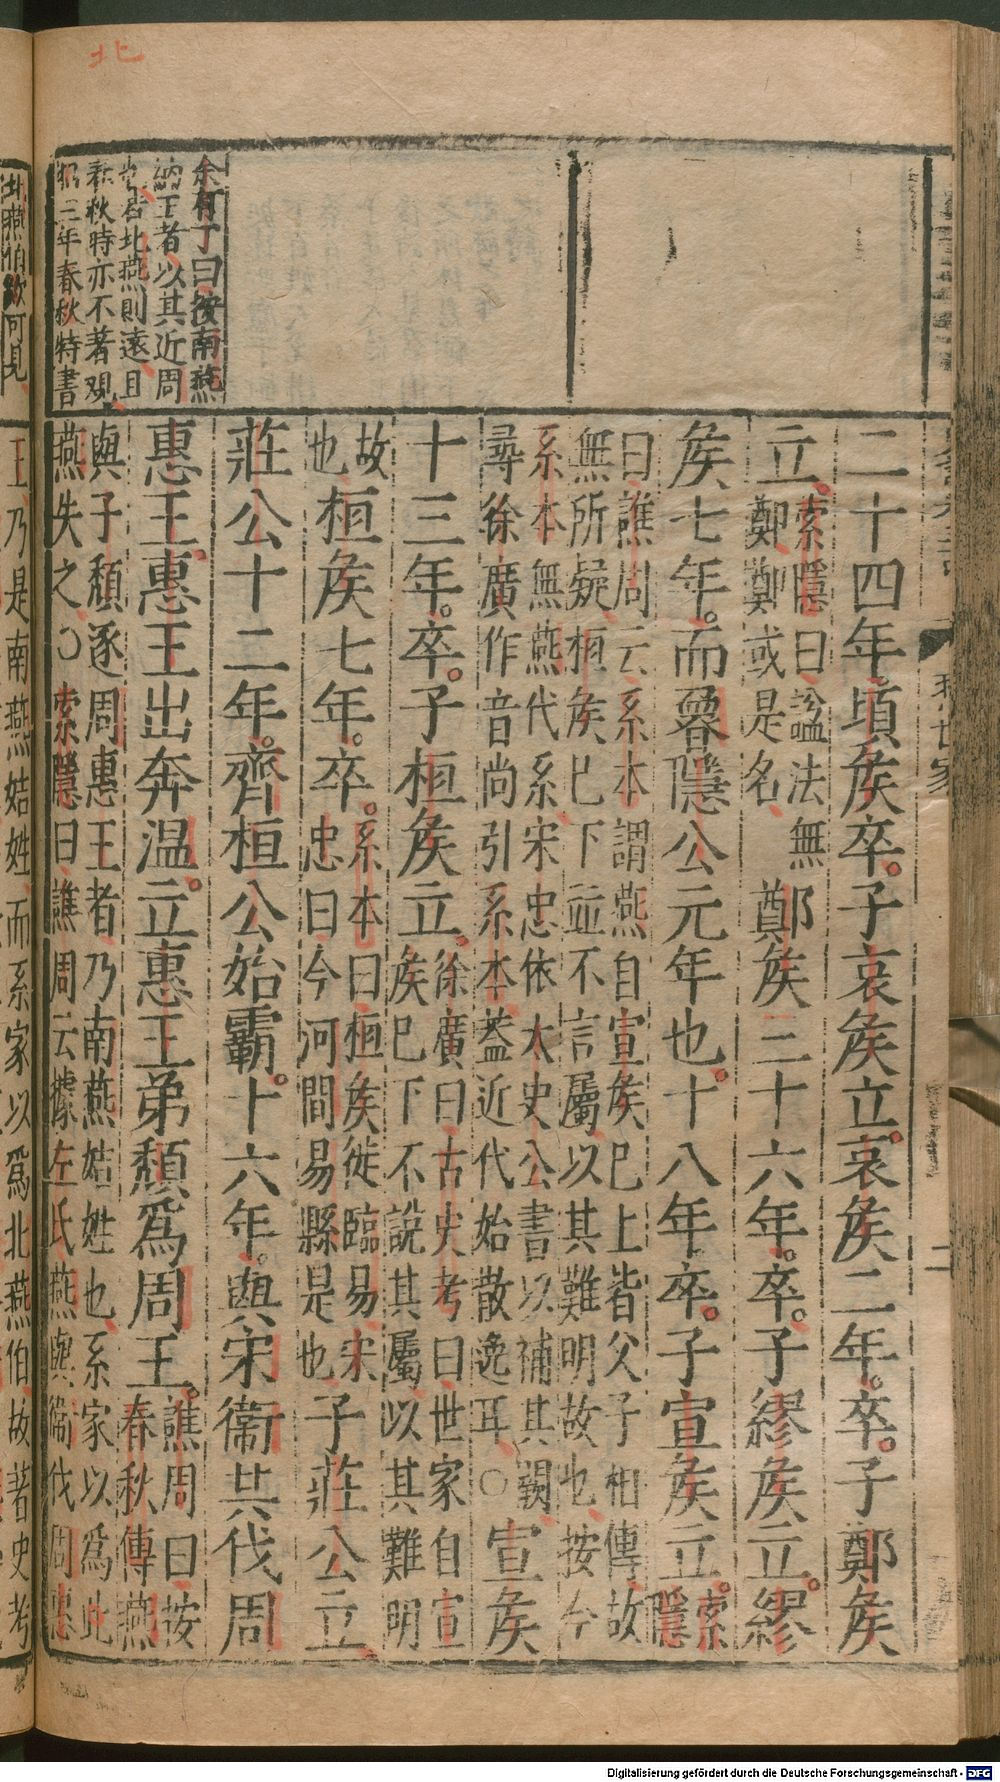 北
余有丁曰按南燕
納王者以其近周
也若北燕則遠且
春秋時亦不著觀
三年春秋特書
燕世家
二
二十四年頃矦卒子哀矦立哀矦二年卒子鄭矦
立索隱曰諡法無鄭
鄭或是名鄭矦三十六年卒子繆矦立繆
矦七年而魯隱公元年也十八年卒子宣矦立索隱
曰譙周云系本謂燕自宣矦巳上皆父子相傳故
無所疑桓矦巳下並不言屬以其難明故也按今
系本無燕代系宋忠依太史公書以補其闕
尋徐廣作音尚引系本蓋近代始散逸耳○宣矦
十三年卒子桓矦立徐廣曰古史考曰世家自宣
矦巳下不說其屬以其難明
故
也桓矦七年卒系本曰桓矦徙臨易宋
忠曰今河間易縣是也子莊公立
莊公十二年齊桓公始霸十六年與宋衞共伐周
惠王惠王出奔溫立惠王弟頽爲周王譙周曰按
春秋傳燕
與子頽逐周惠王者乃南燕姞姓也系家以爲北
燕失之○索隱曰譙周云據左氏燕與衞伐周惠
王乃是南燕姞姓而系家以爲北燕伯故著史考
北燕伯款可見
Digitalisierung gefördert durch die Deutsche Forschungsgemeinschaft - DFG